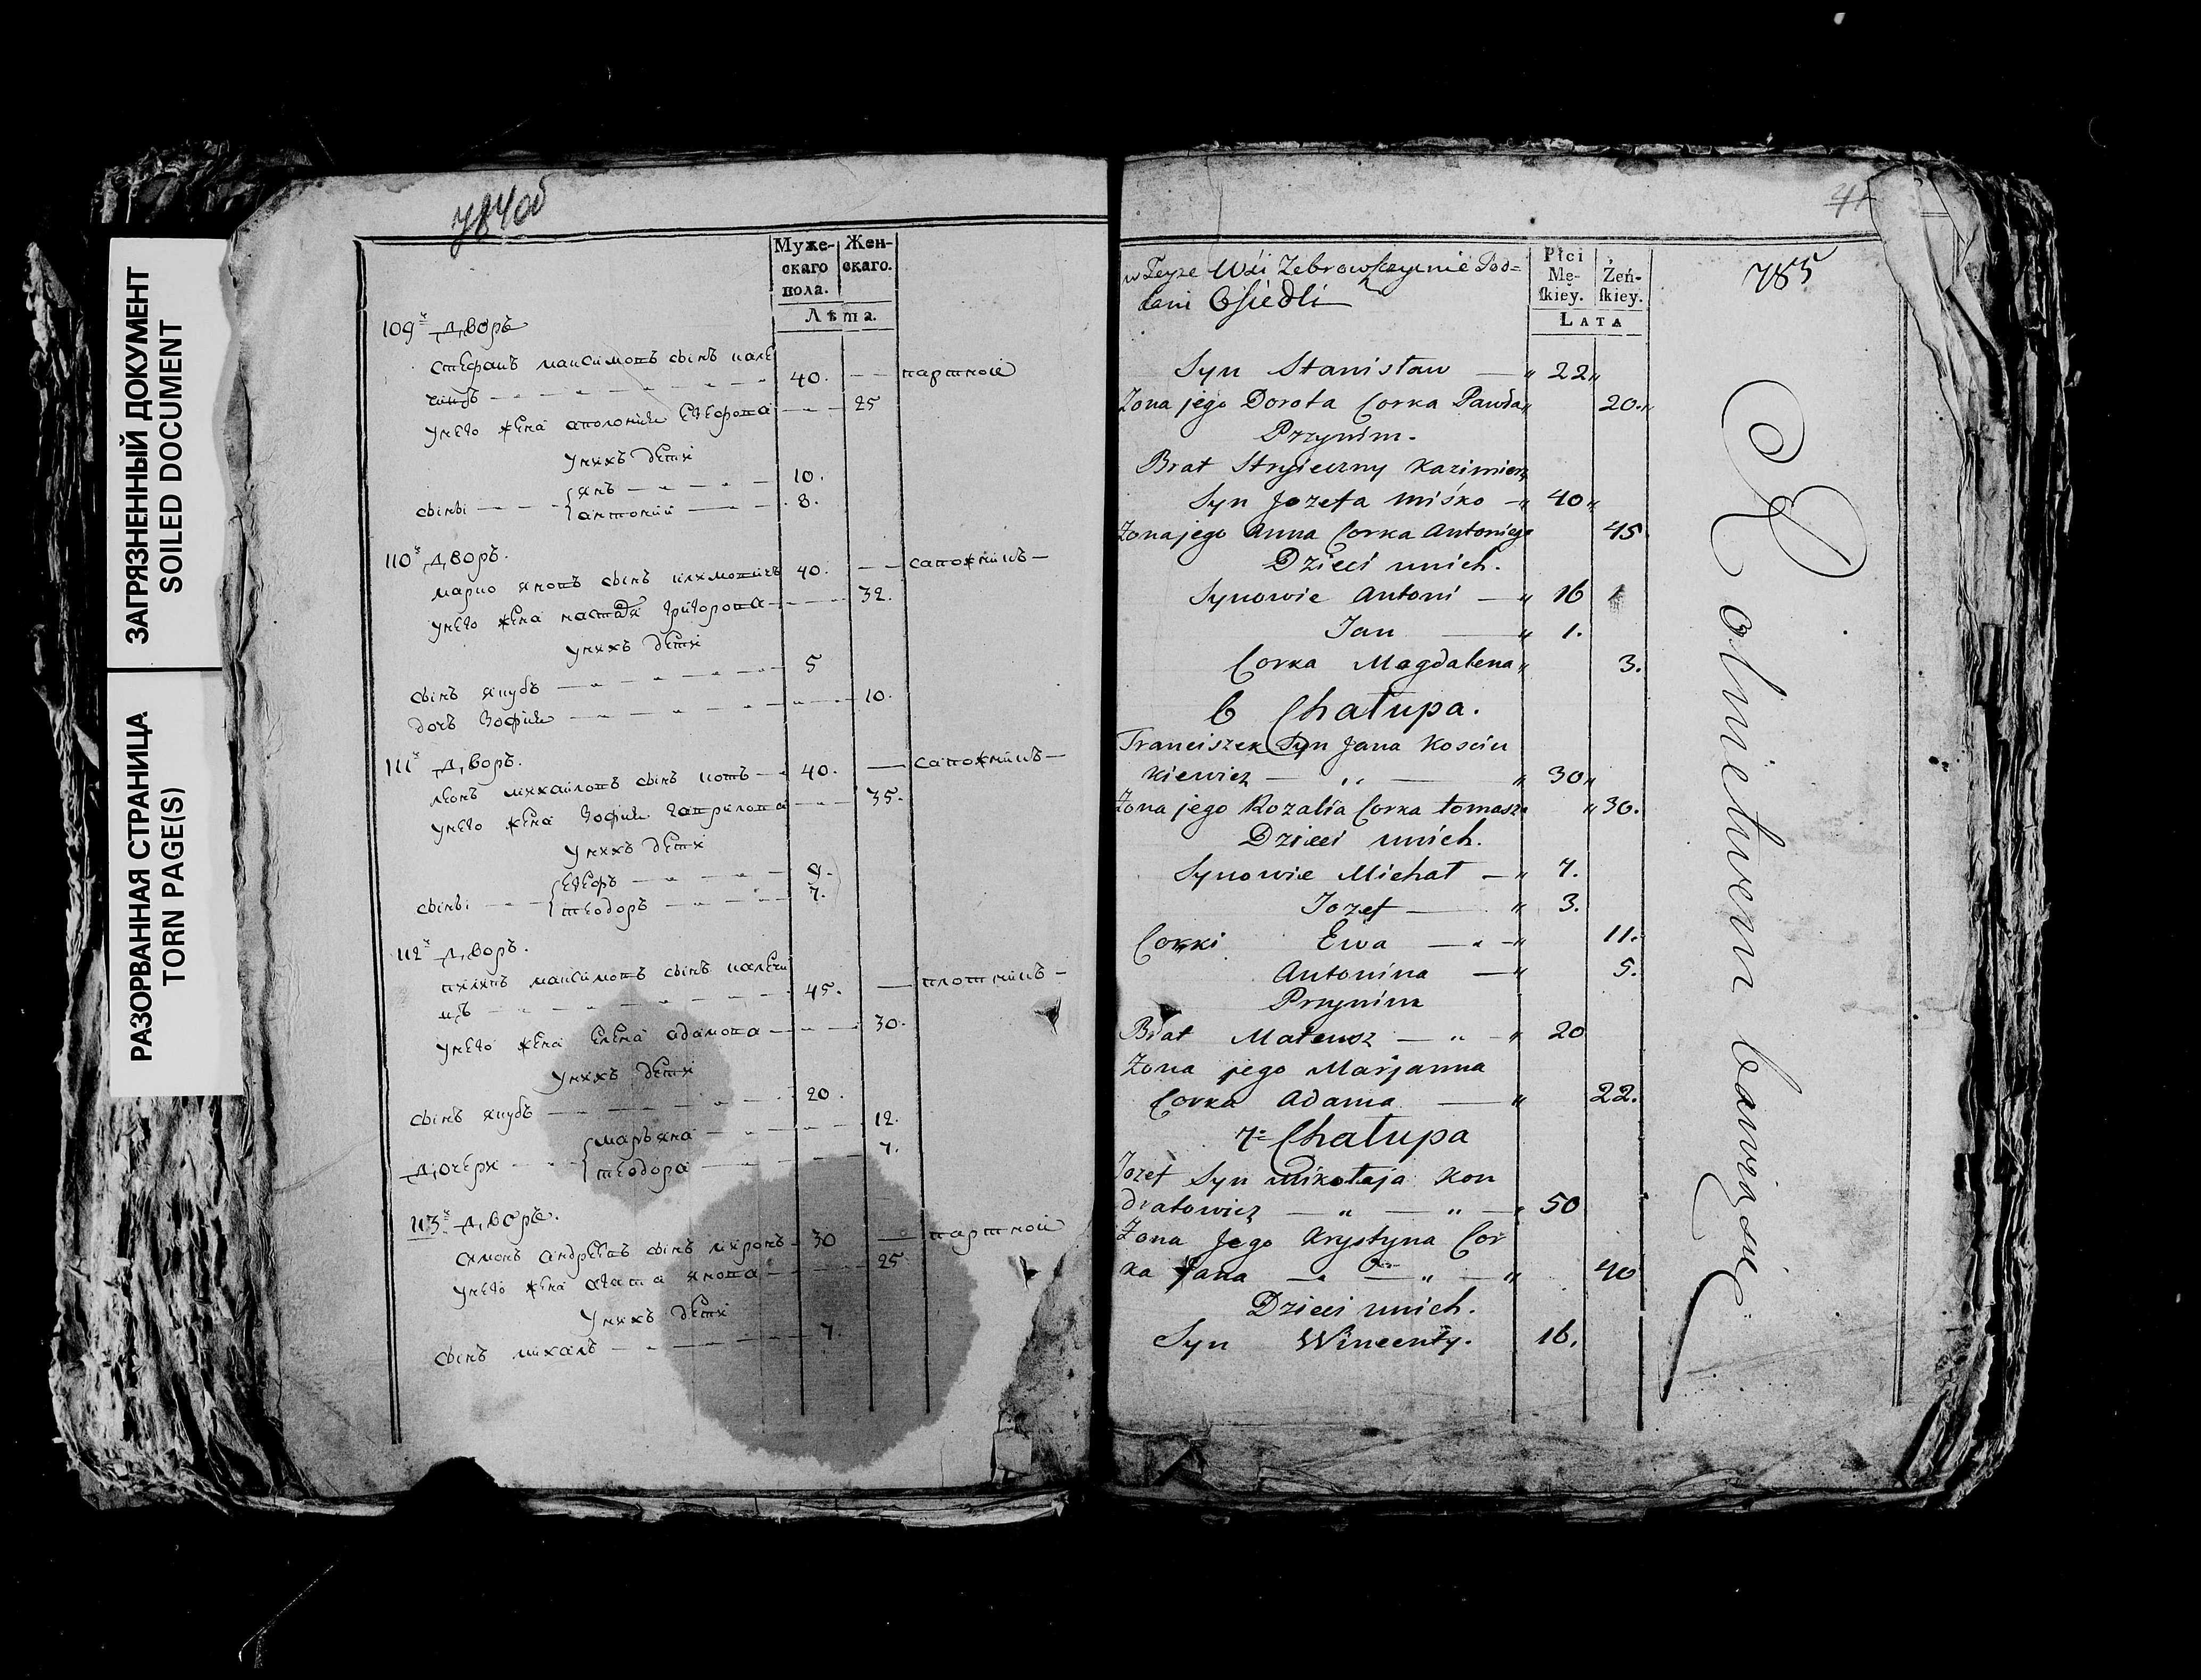 ЗАГРЯЗНЕННЫЙ ДОКУМЕНТ
SOILED DOCUMENT
РАЗОРВАННАЯ СТРАНИЦА
TORN PAGE(S)
784об
Муже- Жен-
скаго скаго.
пола.
Лѣта.
109й Дворъ
Стефанъ максимовъ сынъ
40. партной
унего жена аполония 25
унихъ дети
янъ 10.
сыны антоний 8.
110й Дворъ.
марко яновъ сынъ 40. сапожникъ
унего жена настазя григорова 32.
унихъ дети
сынъ якубъ 5
дочъ Зофия 10.
111й Дворъ.
леонъ михайловъ сынъ котъ 40. сапожникъ
унего жена Зофия гаврилова 35.
унихъ дети
егоръ 9.
сыны теодоръ 7.
112й Дворъ.
максимовъ сынъ
45. плотникъ
унего жена Елена адамова 30.
унихъ дети
сынъ якубъ 20.
марьяна 12.
Дочери теодора 7.
113й Дворъ.
симонъ андреевъ сынъ миронъ 30 партной
унего жена агата янова 25
унихъ дети
сынъ михалъ 7.
41
785
w Teyże Wsi Zebrowszczyznie Pod=
dani Osiedli
Płci
Mę- Żeń-
skiey. skiey.
LATA
Syn Stanisław 22
Zona jego Dorota Corka Pawła 20.
Przynim.
Brat Stryieczny Kazimierz
Syn Jozefa Miśko 40
Zona jego Anna Corka Antoniego 45
Dzieci unich.
Synowie Antoni 16
Jan 1.
Corka Magdalena 3.
6 Chałupa.
Franciszek Syn Jana Kosciu
kiewicz 30
Zona jego Rozalia Corka tomasza 30.
Dzieci unich.
Synowie Michał 7.
Jozef 3.
Corki Ewa 11.
Antonina 5.
Przynim
Brat Mateusz 20
Zona jego Marjanna
Corka Adama 22.
7= Chałupa
Jozef Syn Mikołaja Kon
dratowicz 50
Zona Jego Krystyna Cor
ka Jana 40
Dzieci unich.
Syn Wincenty. 16.
Rolnictwem bawią się